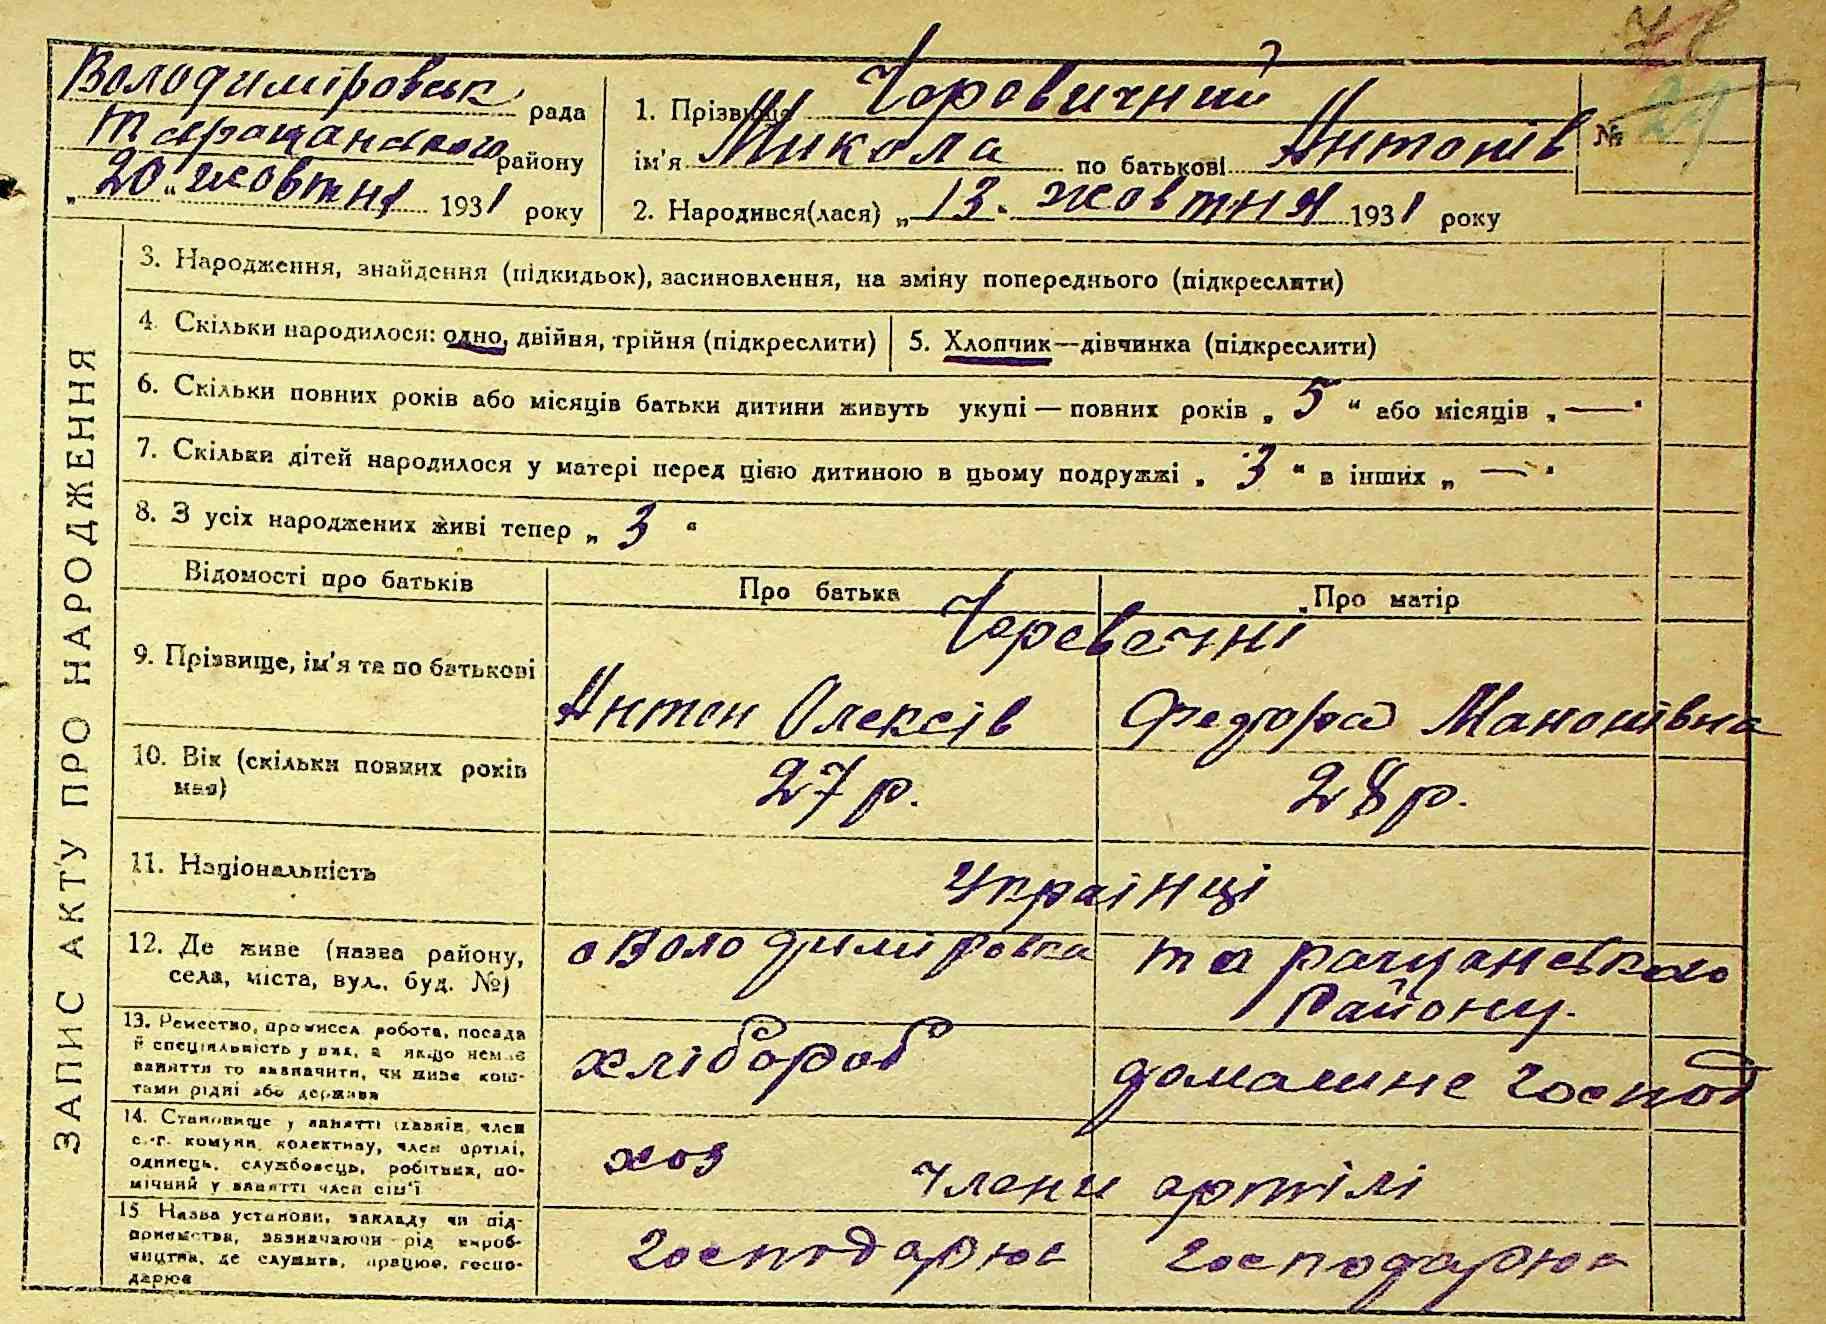 Володиміровськ рада
Таращанського району
„20" жовтня 1931 року
1. Прізвище Черевичний
ім'я Микола по батькові Антонів
2. Народився(лася) „13" жовтня 1931 року
№ 29
ЗАПИС АКТУ ПРО НАРОДЖЕННЯ
3. Народження, знайдення (підкидьок), засиновлення, на зміну попереднього (підкреслити)
4. Скільки народилося: одно, двійня, трійня (підкреслити)
5. Хлопчик—дівчинка (підкреслити)
6. Скільки повних років або місяців батьки дитини живуть укупі — повних років „5" або місяців „—"
7. Скільки дітей народилося у матері перед цією дитиною в цьому подружжі „3" в інших „—"
8. З усіх народжених живі тепер „3"
Відомості про батьків
Про батька
Про матір
9. Прізвище, ім'я та по батькові
Черевечні
Антон Олексів
Федора Маконівна
10. Вік (скільки повних років
має)
27 р.
28 р.
11. Національність
Українці
12. Де живе (назва району,
села, міста, вул., буд. №)
с Володиміровка
таращанського
району.
13. Ремество, промисел, робота, посада
й спеціяльність у них, а якщо немає
заняття то зазначити, чи живе кош-
тами рідні або держави
хлібороб
домашнє господ
14. Становище у занятті (хазяїн, член
с.-г. комуни, колективу, член артілі,
одинець, службовець, робітник, по-
мічний у занятті член сім'ї
хоз
члени артілі
15. Назва установи, закладу чи під-
приємства, зазначаючи рід вироб-
ництва, де служить, працює, госпо-
дарює
господарює
господарює